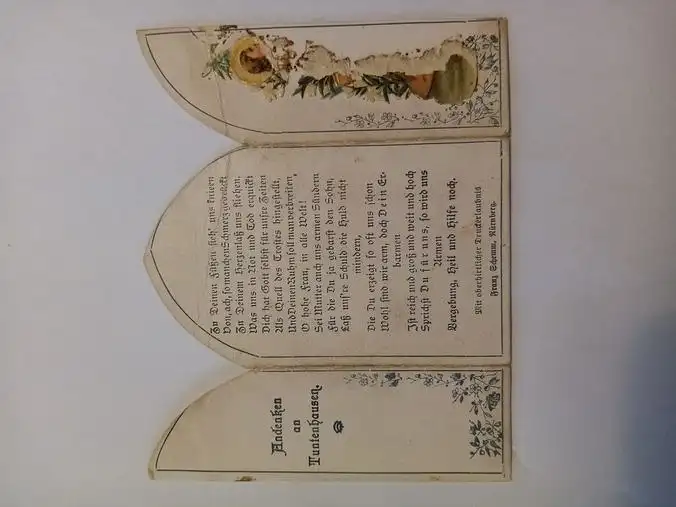 Andenken
an
Tuntenhausen.
Zu Deinen Füßen sieh' uns knieen
Von, ach, so manchem Schmerz gedrückt
Zu Deinem Herzen laß uns fliehen,
Was uns in Not und Tod erquickt
Dich hat Gott selbst für unsre Zeiten
Als Quell des Trostes hingestellt,
Und Deinen Ruhm soll man verbreiten,
O hohe Frau, in alle Welt!
Sei Mutter auch uns armen Sündern
Für die Du ja gebarst den Sohn,
Laß uns're Schuld die Huld nicht
mindern,
Die Du erzeigt so oft uns schon
Wohl sind wir arm, doch Dein Er-
barmen
Ist reich und groß und weit und hoch
Sprichst Du für uns, so wird uns
Armen
Vergebung, Heil und Hilfe noch.
Mit oberhirtlicher Druckerlaubnis
Franz Schemm, Nürnberg.